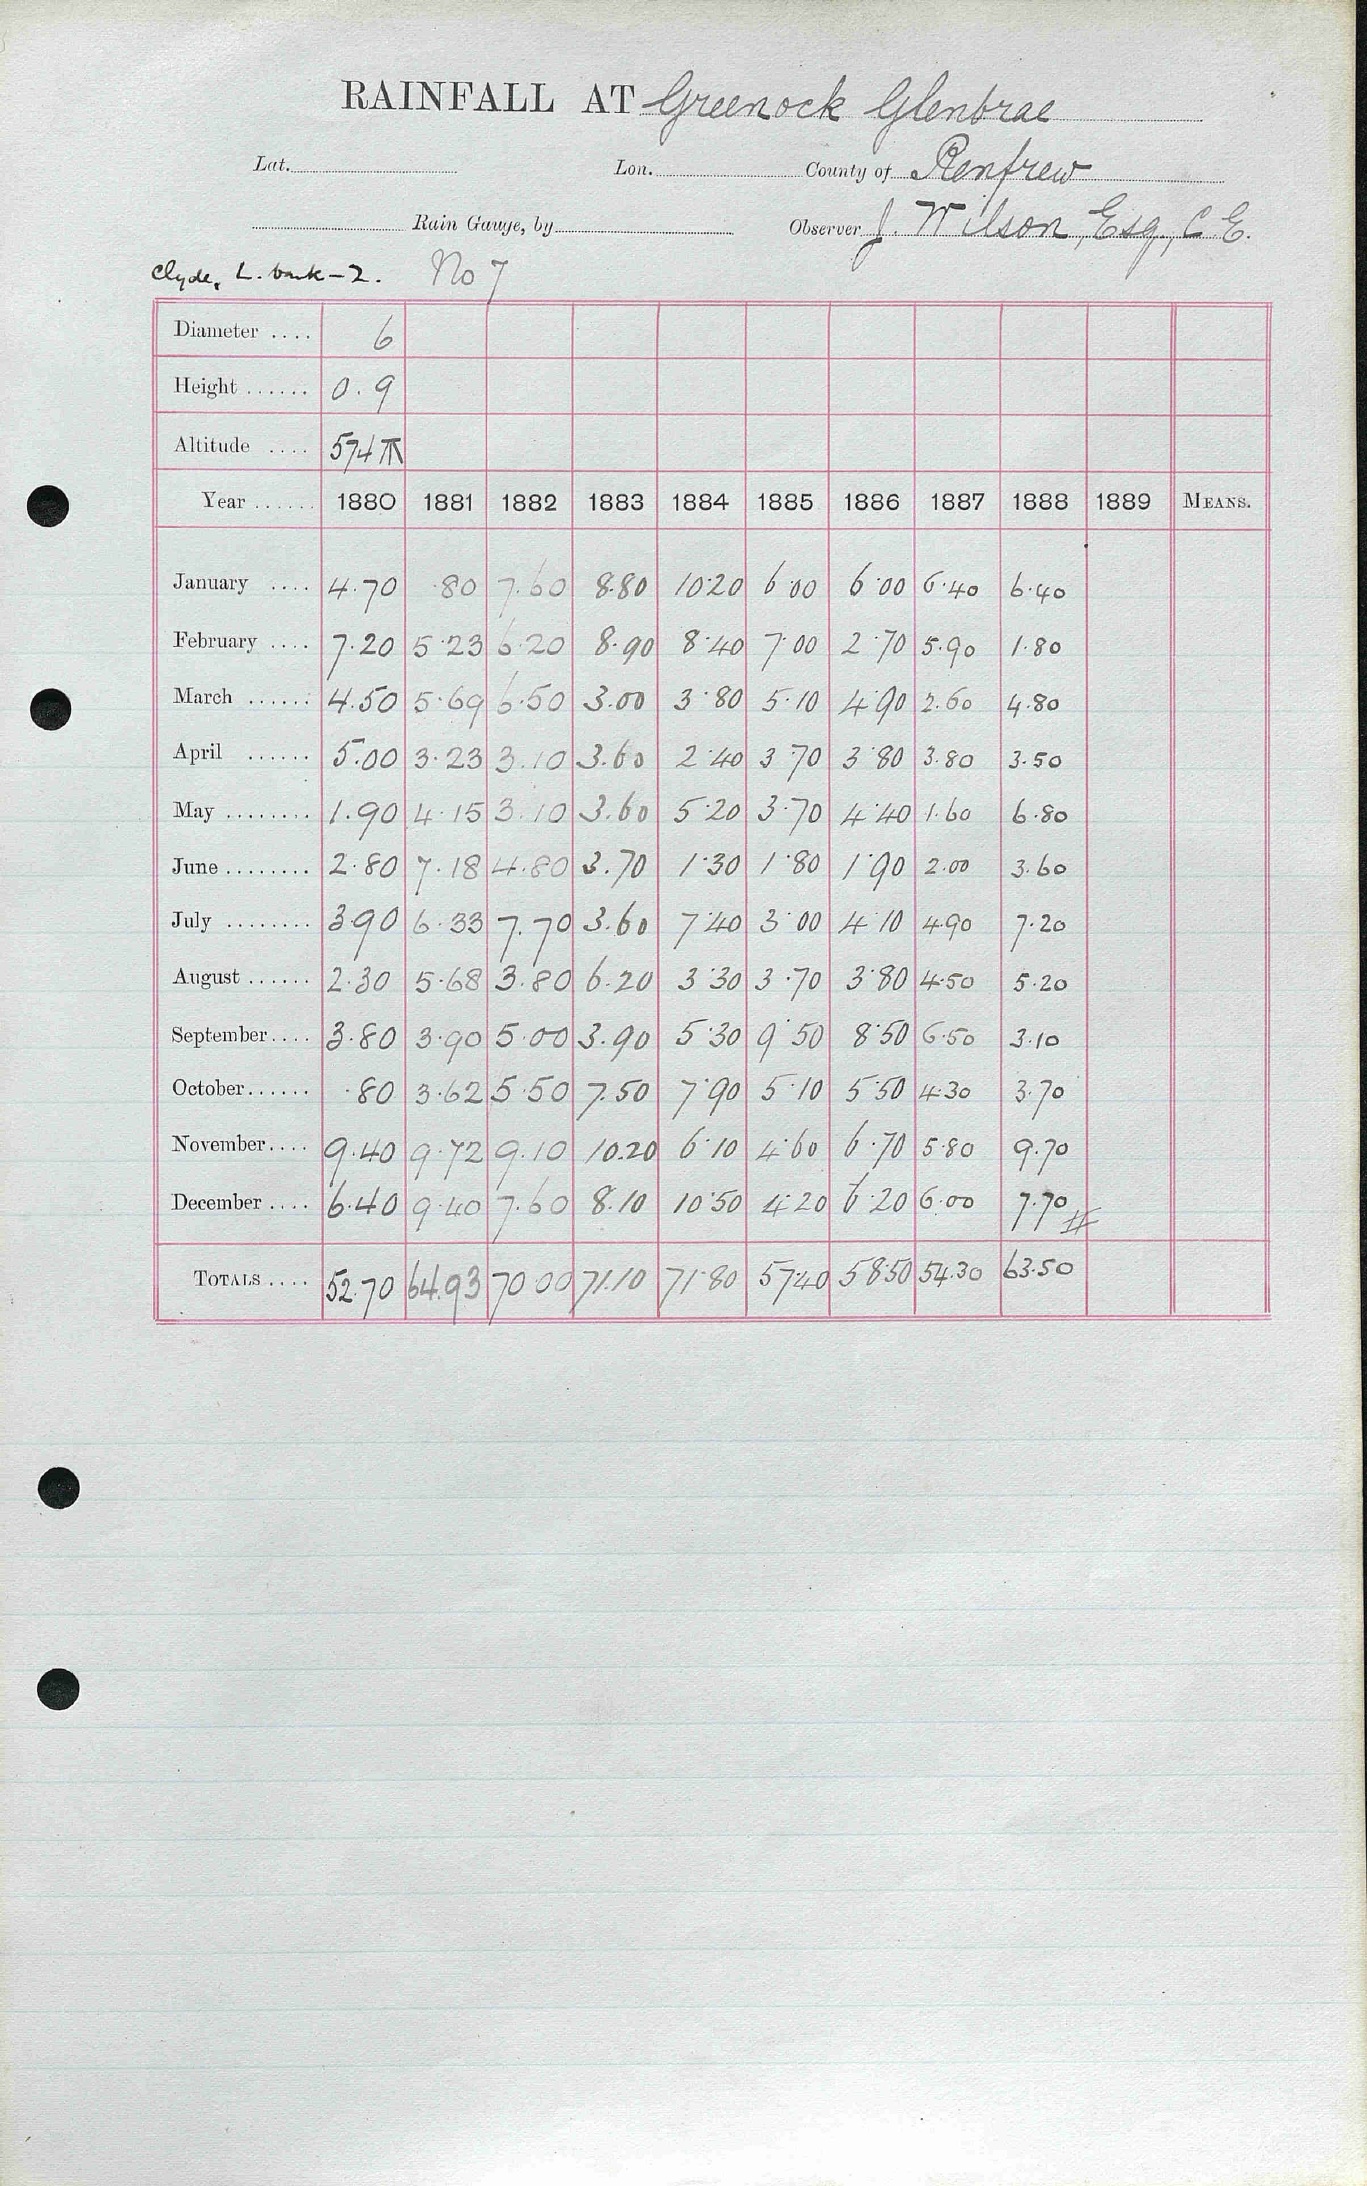 RAINFALL AT Greenock Glenbrae
Lat. Lon. County of Renfrew
Rain Gauge, by Observer J. Wilson, Esq., C.E.
Clyde, L. bank-2. No 7
Diameter .... 6
Height ...... 0.9
Altitude .... 574
Year ...... 1880 1881 1882 1883 1884 1885 1886 1887 1888 1889 MEANS.
January .... 4.70 .80 7.60 8.80 10.20 6.00 6.00 6.40 6.40
February .... 7.20 5.23 6.20 8.90 8.40 7.00 2.70 5.90 1.80
March ...... 4.50 5.69 6.50 3.00 3.80 5.10 4.90 2.60 4.80
April ...... 5.00 3.23 3.10 3.60 2.40 3.70 3.80 3.80 3.50
May ........ 1.90 4.15 3.10 3.60 5.20 3.70 4.40 1.60 6.80
June ........ 2.80 7.18 4.80 3.70 1.30 1.80 1.90 2.00 3.60
July ........ 3.90 6.33 7.70 3.60 7.40 3.00 4.10 4.90 7.20
August ...... 2.30 5.68 3.80 6.20 3.30 3.70 3.80 4.50 5.20
September.... 3.80 3.90 5.00 3.90 5.30 9.50 8.50 6.50 3.10
October...... .80 3.62 5.50 7.50 7.90 5.10 5.50 4.30 3.70
November.... 9.40 9.72 9.10 10.20 6.10 4.60 6.70 5.80 9.70
December .... 6.40 9.40 7.60 8.10 10.50 4.20 6.20 6.00 7.70 #
TOTALS .... 52.70 64.93 70.00 71.10 71.80 57.40 58.50 54.30 63.50